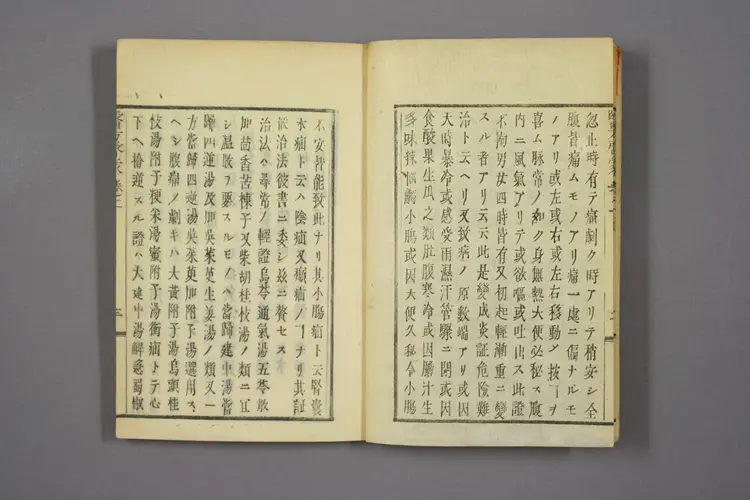 忽止時有テ齋劇ク時アリテ稍安シ全
腹皆痛ムモノアリ痛一處ニ偏ナルモ
ノアリ或左或右或左右移動シ按ヿヲ
喜ム脉常ノ如ク身無熱大便必秘ス腹
内ニ風氣アリテ或欲嘔或吐出ス此證
不拘男女四時皆有又初起輕漸重ニ變
スル者アリ云云此是變成炎証危險難
治ト云ヘリ又致病ノ原數端アリ或因
天時暴冷或感受雨濕汗管驟ニ閉或因
食酸果生瓜之類肚腹寒冷或因膓汁生
多味辣惱膓小膓或因大便久秘令小膓
不安皆能致此ナリ其小膓疝ト云腎嚢
水疝ト云ハ陰疝又㿗疝ノヿナリ其証
候治法彼書ニ委シ茲ニ贅セス
治法ハ尋常ノ輕證烏苓通氣湯五苓散
加茴香苦楝子又柴胡桂枝湯ノ類ニ宜
シ温散ヲ要スルモノヘ當歸建中湯當
歸四逆湯及加吳茱萸生姜湯ノ類又一
方當歸四逆湯吳茱萸加附子湯選用ス
ヘシ腹痛ノ劇キハ大黄附子湯烏頭桂
枝湯附子粳米湯蜜附子湯衝疝トテ心
下ヘ搶逆スル證ハ大建中湯解急蜀椒